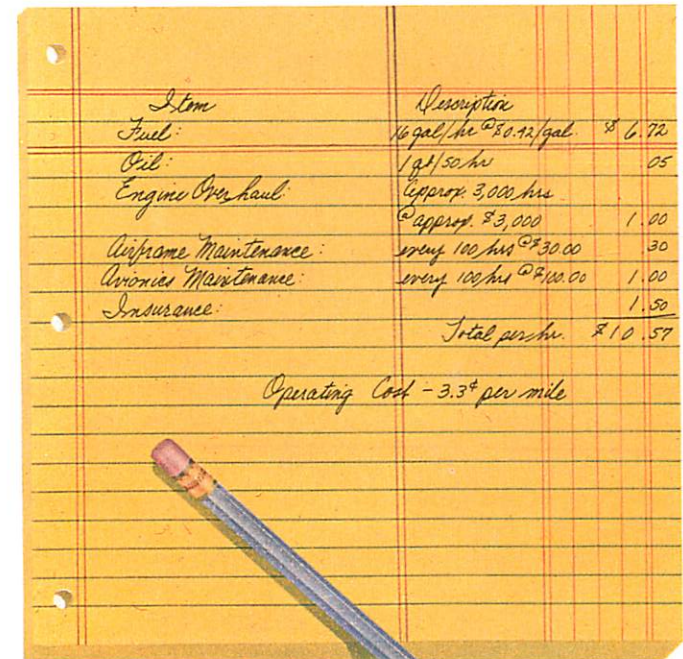 Item Description
Fuel: 16 gal/hr @ $0.42/gal. $ 6.72
Oil: 1 qt/50 hr .05
Engine Overhaul: Approx. 3,000 hrs
@ approx. $3,000 1.00
Airframe Maintenance: every 100 hrs @ $30.00 .30
Avionics Maintenance: every 100 hrs @ $100.00 1.00
Insurance: 1.50
Total per hr. $10.57
Operating Cost - 3.3¢ per mile